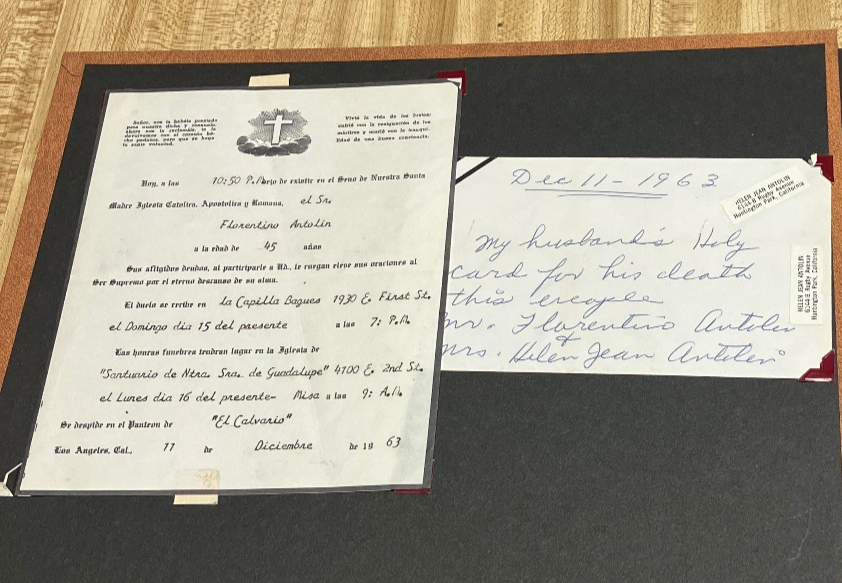 Señor, nos lo habéis prestado
para nuestra dicha y consuelo,
ahora nos lo reclamáis, te lo
devolvemos con el corazón he-
cho pedazos, pero que se haga
tu santa voluntad.
Vivió la vida de los justos;
sufrió con la resignación de los
mártires y murió con la tranqui-
lidad de una buena conciencia.
Hoy, a las 10:50 P.M. dejo de existir en el Seno de Nuestra Santa
Madre Iglesia Catolica, Apostolica y Romana, el Sr.
Florentino Antolin
a la edad de 45 años
Sus afligidos deudos, al participarle a Ud., le ruegan eleve sus oraciones al
Ser Supremo por el eterno descanso de su alma.
El duelo se recibe en la Capilla Bagues 1930 E. First St.
el Domingo dia 15 del presente a las 7: P.M.
Las honras funebres tendran lugar en la Iglesia de
"Santuario de Ntra. Sra. de Guadalupe" 4100 E. 2nd St.
el Lunes dia 16 del presente- Misa a las 9: A.M.
Se despide en el Panteon de "El Calvario"
Los Angeles, Cal., 11 de Diciembre de 19 63
Dec 11 - 1963
My husband's Holy
card for his death
this
Mr. Florentino Antolin
+
Mrs. Helen Jean Antolin
HELEN JEAN ANTOLIN
6144-B Rugby Avenue
Huntington Park, California
HELEN JEAN ANTOLIN
6144-B Rugby Avenue
Huntington Park, California